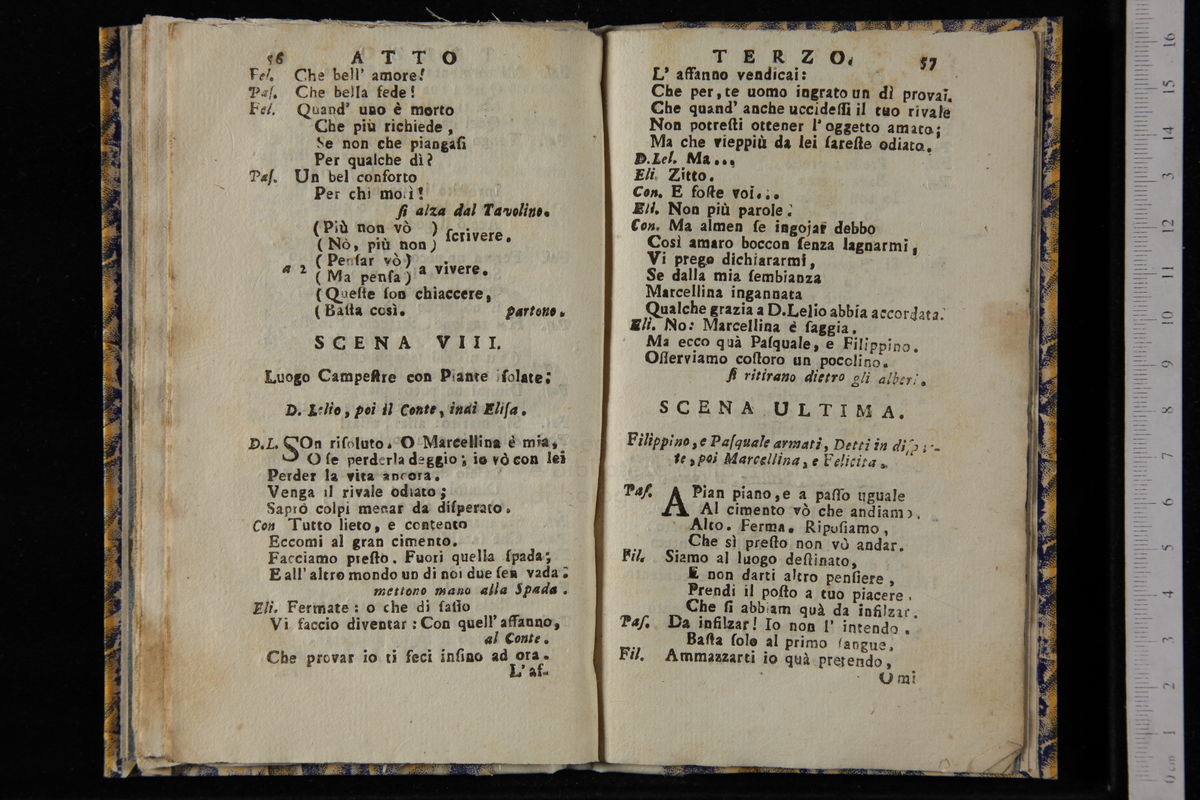 56 ATTO
Fel. Che bell' amore!
Pas. Che bella fede!
Fel. Quand' uno è morto
Che più richiede,
Se non che piangaſi
Per qualche dì?
Paſ. Un bel conforto
Per chi morì!
ſi alza dal Tavolino.
(Più non vò )
(Nò, più non) ſcrivere.
a 2 (Penſar vò)
(Ma penſa) a vivere.
(Queſte ſon chiaccere,
(Baſta così. partono.
SCENA VIII.
Luogo Campeſtre con Piante iſolate;
D. Lelio, poi il Conte, indi Eliſa.
D.L. SOn riſoluto. O Marcellina è mia,
O ſe perderla deggio; io vò con lei
Perder la vita ancora.
Venga il rivale odiato;
Saprò colpi menar da diſperato.
Con Tutto lieto, e contento
Eccomi al gran cimento.
Facciamo preſto. Fuori quella ſpada;
E all' altro mondo un di noi due ſen vada.
mettono mano alla Spada.
Eli. Fermate: o che di ſaſſo
Vi faccio diventar: Con quell' affanno,
al Conte.
Che provar io ti feci inſino ad ora.
L'af-
TERZO. 57
L' affanno vendicai:
Che per, te uomo ingrato un dì provai.
Che quand' anche uccideſſi il tuo rivale
Non potreſti ottener l'oggetto amato;
Ma che vieppiù da lei ſareſte odiato.
D.Lel. Ma...
Eli. Zitto.
Con. E foſte voi...
Eli. Non più parole.
Con. Ma almen ſe ingojar debbo
Così amaro boccon ſenza lagnarmi,
Vi prego dichiararmi,
Se dalla mia ſembianza
Marcellina ingannata
Qualche grazia a D.Lelio abbia accordata.
Eli. No: Marcellina è ſaggia.
Ma ecco quà Paſquale, e Filippino.
Oſſerviamo coſtoro un pocolino.
ſi ritirano dietro gli alberi.
SCENA ULTIMA.
Filippino, e Paſquale armati, Detti in diſpar-
te, poi Marcellina, e Felicita.
Paſ. A Pian piano, e a paſſo uguale
Al cimento vò che andiamo.
Alto. Ferma. Ripoſiamo,
Che sì preſto non vò andar.
Fil. Siamo al luogo deſtinato,
E non darti altro penſiere,
Prendi il poſto a tuo piacere,
Che ſi abbiam quà da infilzar.
Paſ. Da infilzar! Io non l' intendo.
Baſta ſolo al primo ſangue.
Fil. Ammazzarti io quà pretendo,
O mi